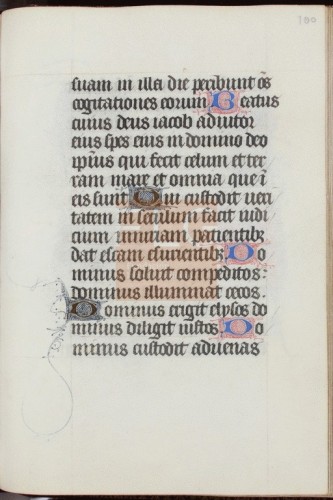 100
suam in illa die peribunt oēs
cogitationes eorum Beatus
cuius deus iacob adiutor
eius spes eius in domino deo
ipsius qui fecit celum et ter
ram mare et omnia que ī
eis sunt Qui custodit veri
tatem in seculum facit iudi
cium iniuriam patientibꝫ
dat escam esurientibꝫ Do
minus soluit compeditos:
dominus illuminat cecos.
Dominus erigit elysos do
minus diligit iustos Do
minus custodit aduenas